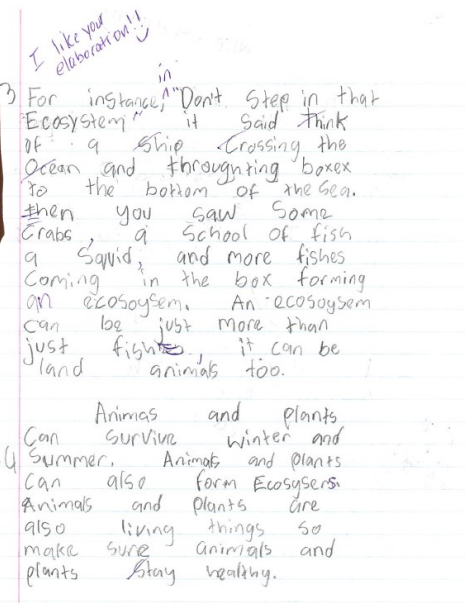 I like your
elaboration!!
3 For instance, in "Don't Step in that
Ecosystem" it Said Think
of a Ship Crossing the
Ocean and throughting boxex
to the bottom of the sea.
then you saw some
Crabs, a School of fish
a Squid, and more fishes
Coming in the box forming
an ecosoysem. An ecosoysem
can be just more than
just fish, it can be
land animals too.
Animas and plants
Can Survive Winter and
4 Summer. Animals and Plants
Can also form Ecosysers.
Animals and plants are
also living things so
make sure animals and
plants Stay healthy.